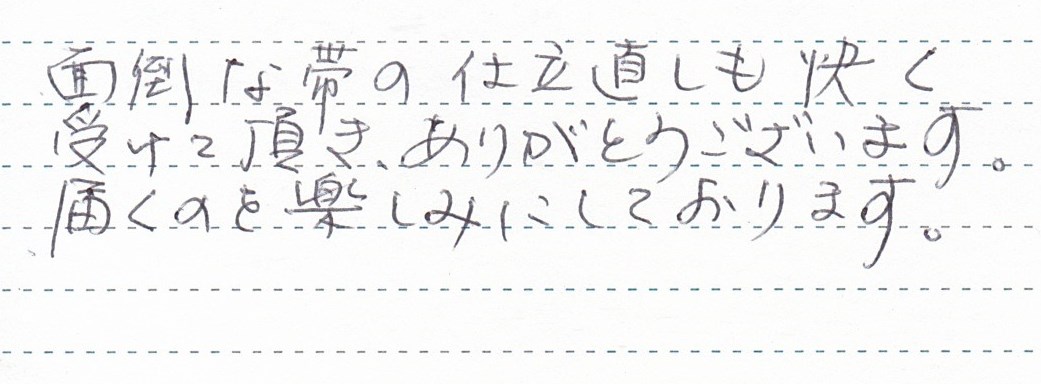 面倒な帯の仕立直しも快く
受けて頂き、ありがとうございます。
届くのを楽しみにしております。